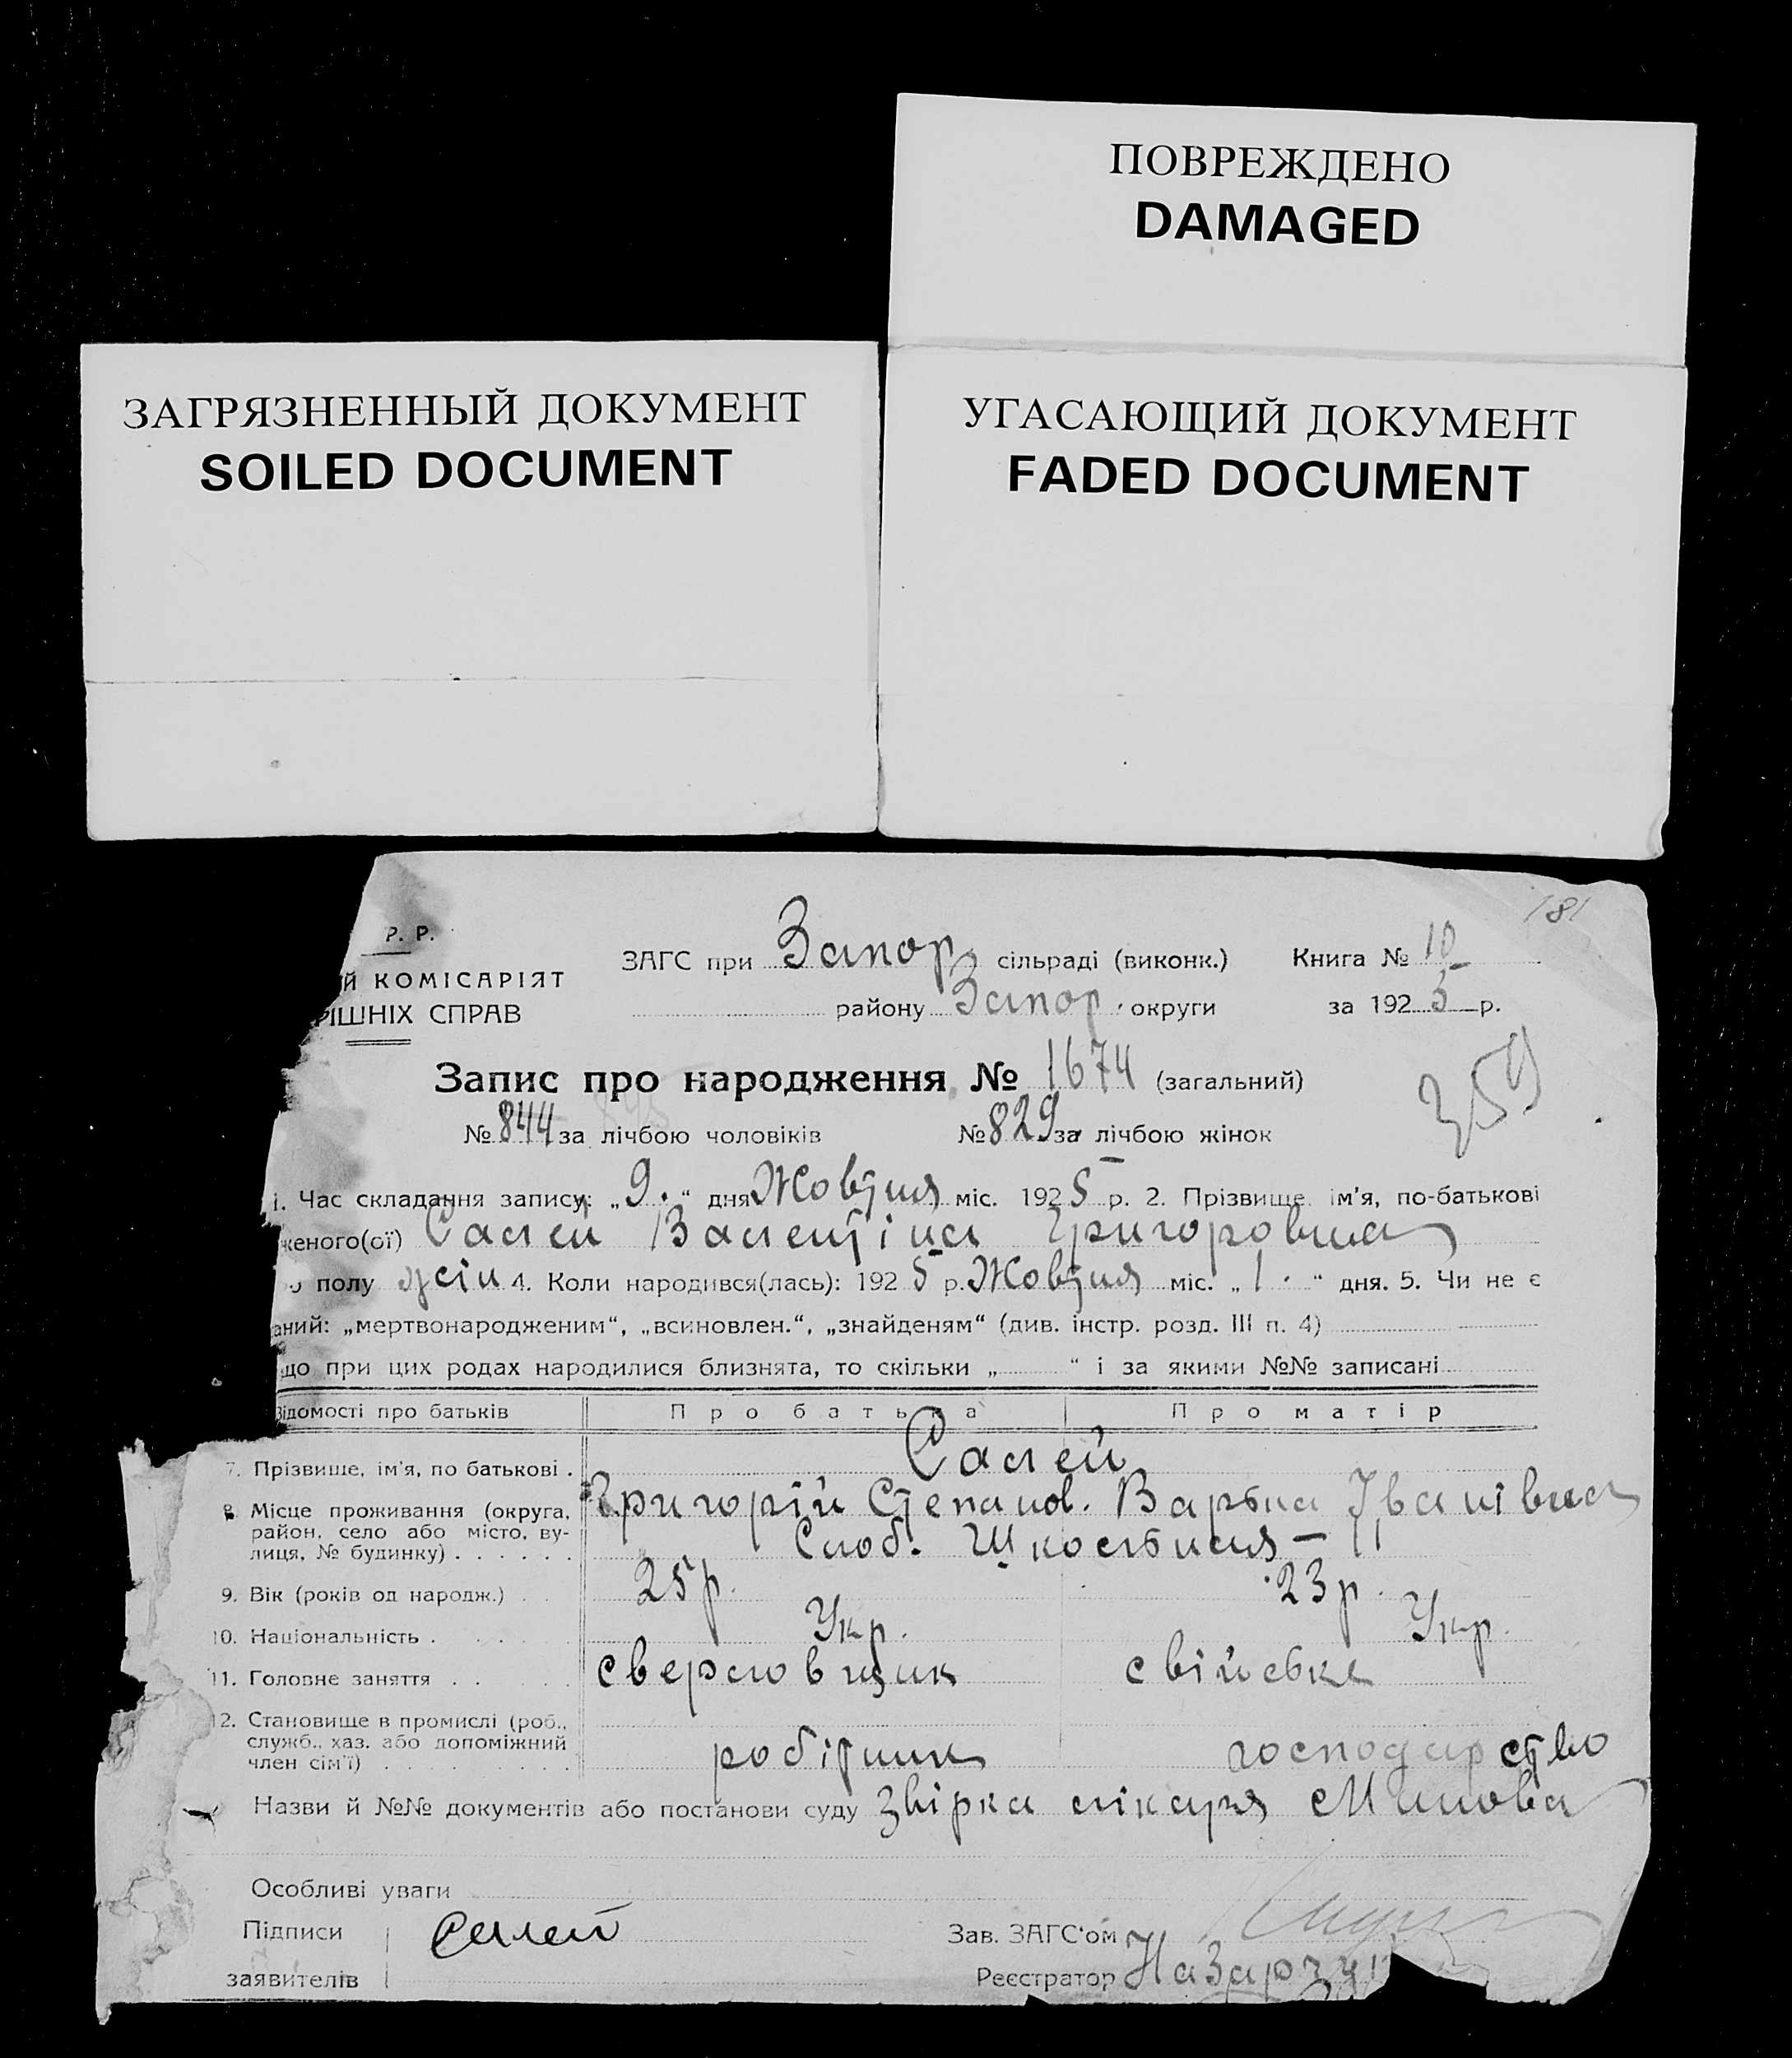 ПОВРЕЖДЕНО
DAMAGED
ЗАГРЯЗНЕННЫЙ ДОКУМЕНТ
SOILED DOCUMENT
УГАСАЮЩИЙ ДОКУМЕНТ
FADED DOCUMENT
181
Р. Р.
й КОМІСАРІЯТ
РІШНІХ СПРАВ
ЗАГС при Запор. сільраді (виконк.) Книга № 10
району Запор. округи за 1925 р.
Запис про народження № 1674 (загальний)
359
№ 844 за лічбою чоловіків № 829 за лічбою жінок
1. Час складання запису: „9.“ дня Жовтня міс. 1925 р. 2. Прізвище, ім'я, по-батькові
женого(ої) Салей Валентіна Григоровна
полу жін 4. Коли народився(лась): 1925 р. Жовтня міс. „1.“ дня. 5. Чи не є
аний: „мертвонародженим“, „всиновлен.“, „знайденям“ (див. інстр. розд. III п. 4)
що при цих родах народилися близнята, то скільки „ “ і за якими №№ записані
Відомості про батьків Про батька Про матір
7. Прізвище, ім'я, по батькові . Салей
Григорій Степанов. Варвна Іванівна
8. Місце проживання (округа, район, село або місто, вулиця, № будинку) . . . . . . Слоб. Шкостьная – 11
9. Вік (років од народж.) . . 25 р. 23 р.
10. Національність . Укр. Укр.
11. Головне заняття . . сверловщик свійське
12. Становище в промислі (роб., служб., хаз. або допоміжний член сім'ї) робітник господарство
Назви й №№ документів або постанови суду Звірка лікаря
Особливі уваги
Підписи Салей Зав. ЗАГС'ом
заявителів Реєстратор